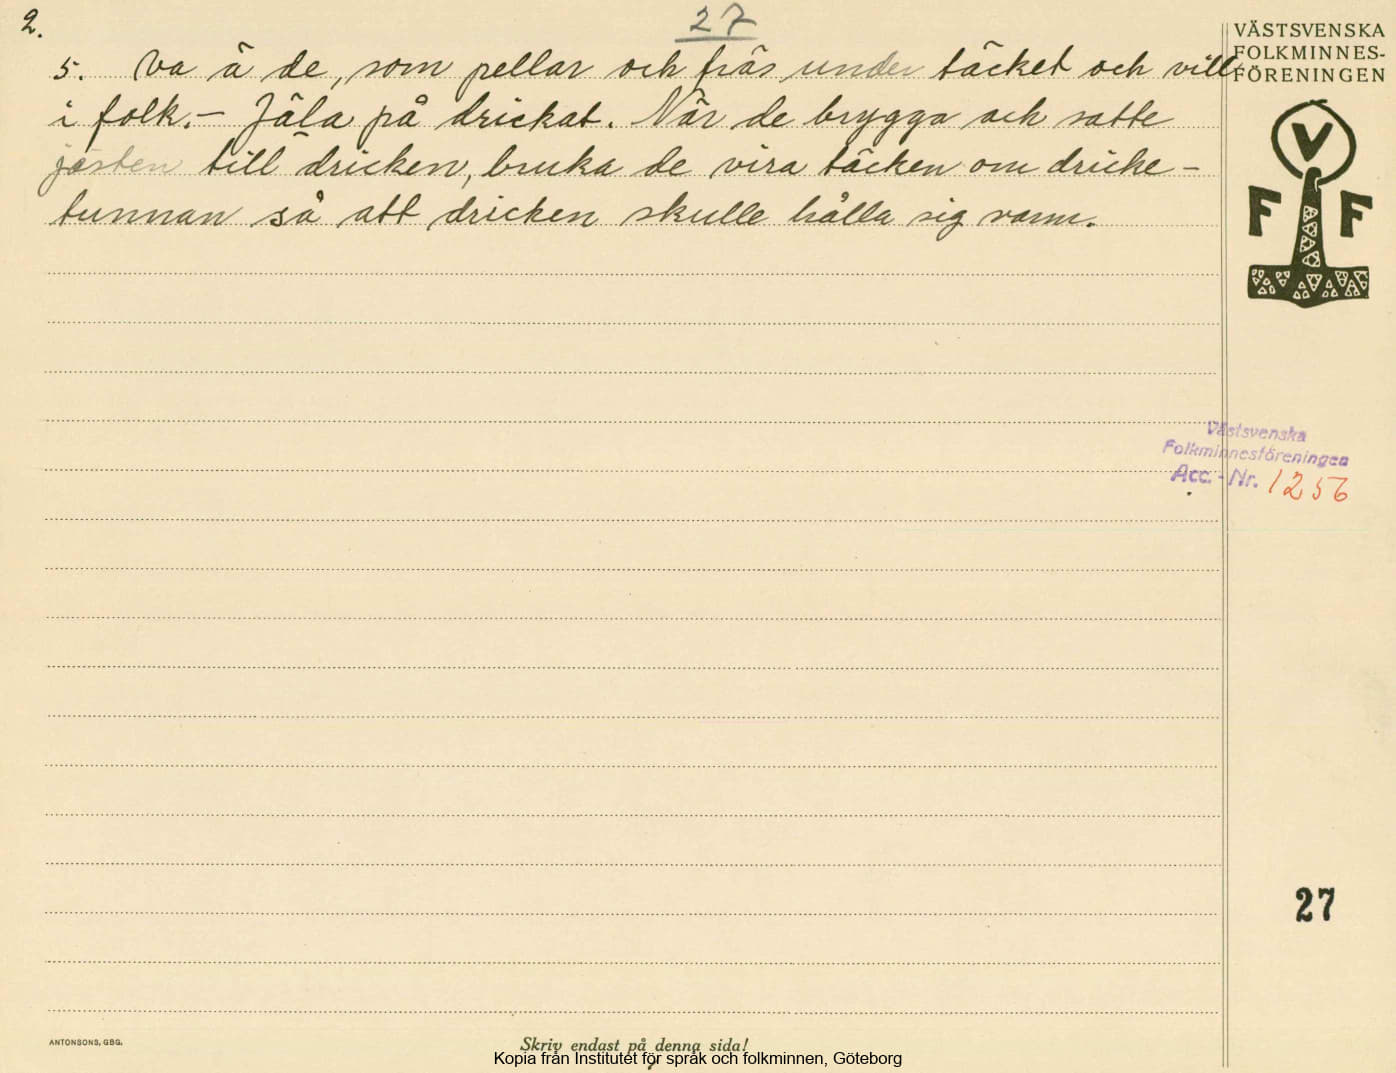 2.
27
5. Va ä de, som pellar och fräs under täcket och vill
i folk. - Jäla på drickat. När de brygga och satte
jästen till dricken, bruka de vira täcken om dricke-
tunnan så att dricken skulle hålla sig varm.
VÄSTSVENSKA
FOLKMINNES-
FÖRENINGEN
V
F F
Västsvenska
Folkminnesföreningen
Acc.-Nr. 1256
27
ANTONSONS, GBG.
Skriv endast på denna sida!
Kopia från Institutet för språk och folkminnen, Göteborg